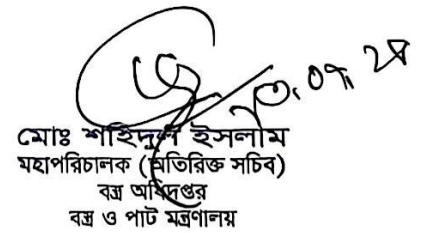 মোঃ শহিদুল ইসলাম
মহাপরিচালক (অতিরিক্ত সচিব)
বস্ত্র অধিদপ্তর
বস্ত্র ও পাট মন্ত্রণালয়